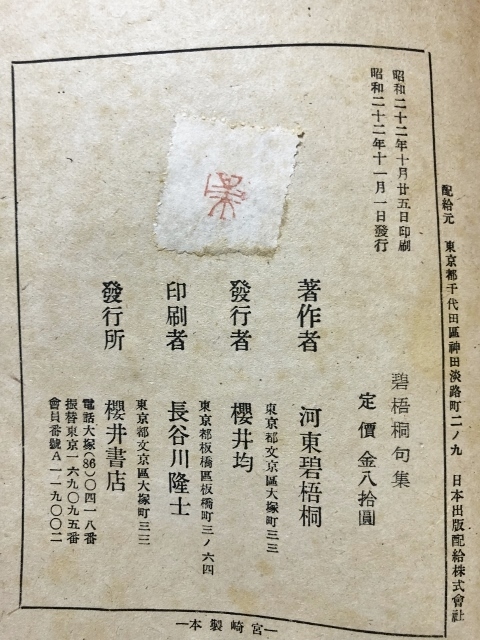 配給元 東京都千代田區神田淡路町二ノ九 日本出版配給株式會社
昭和二十二年十月廿五日印刷
昭和二十二年十一月一日發行
碧梧桐句集
定價 金八拾圓
著作者 河東碧梧桐
東京都文京區大塚町三三
發行者 櫻井均
東京都板橋區板橋町三ノ六四
印刷者 長谷川隆士
東京都文京區大塚町三三
發行所 櫻井書店
電話大塚(86)〇四一八番
振替東京一六九〇九五番
會員番號A一一九〇〇二
―宮崎製本―